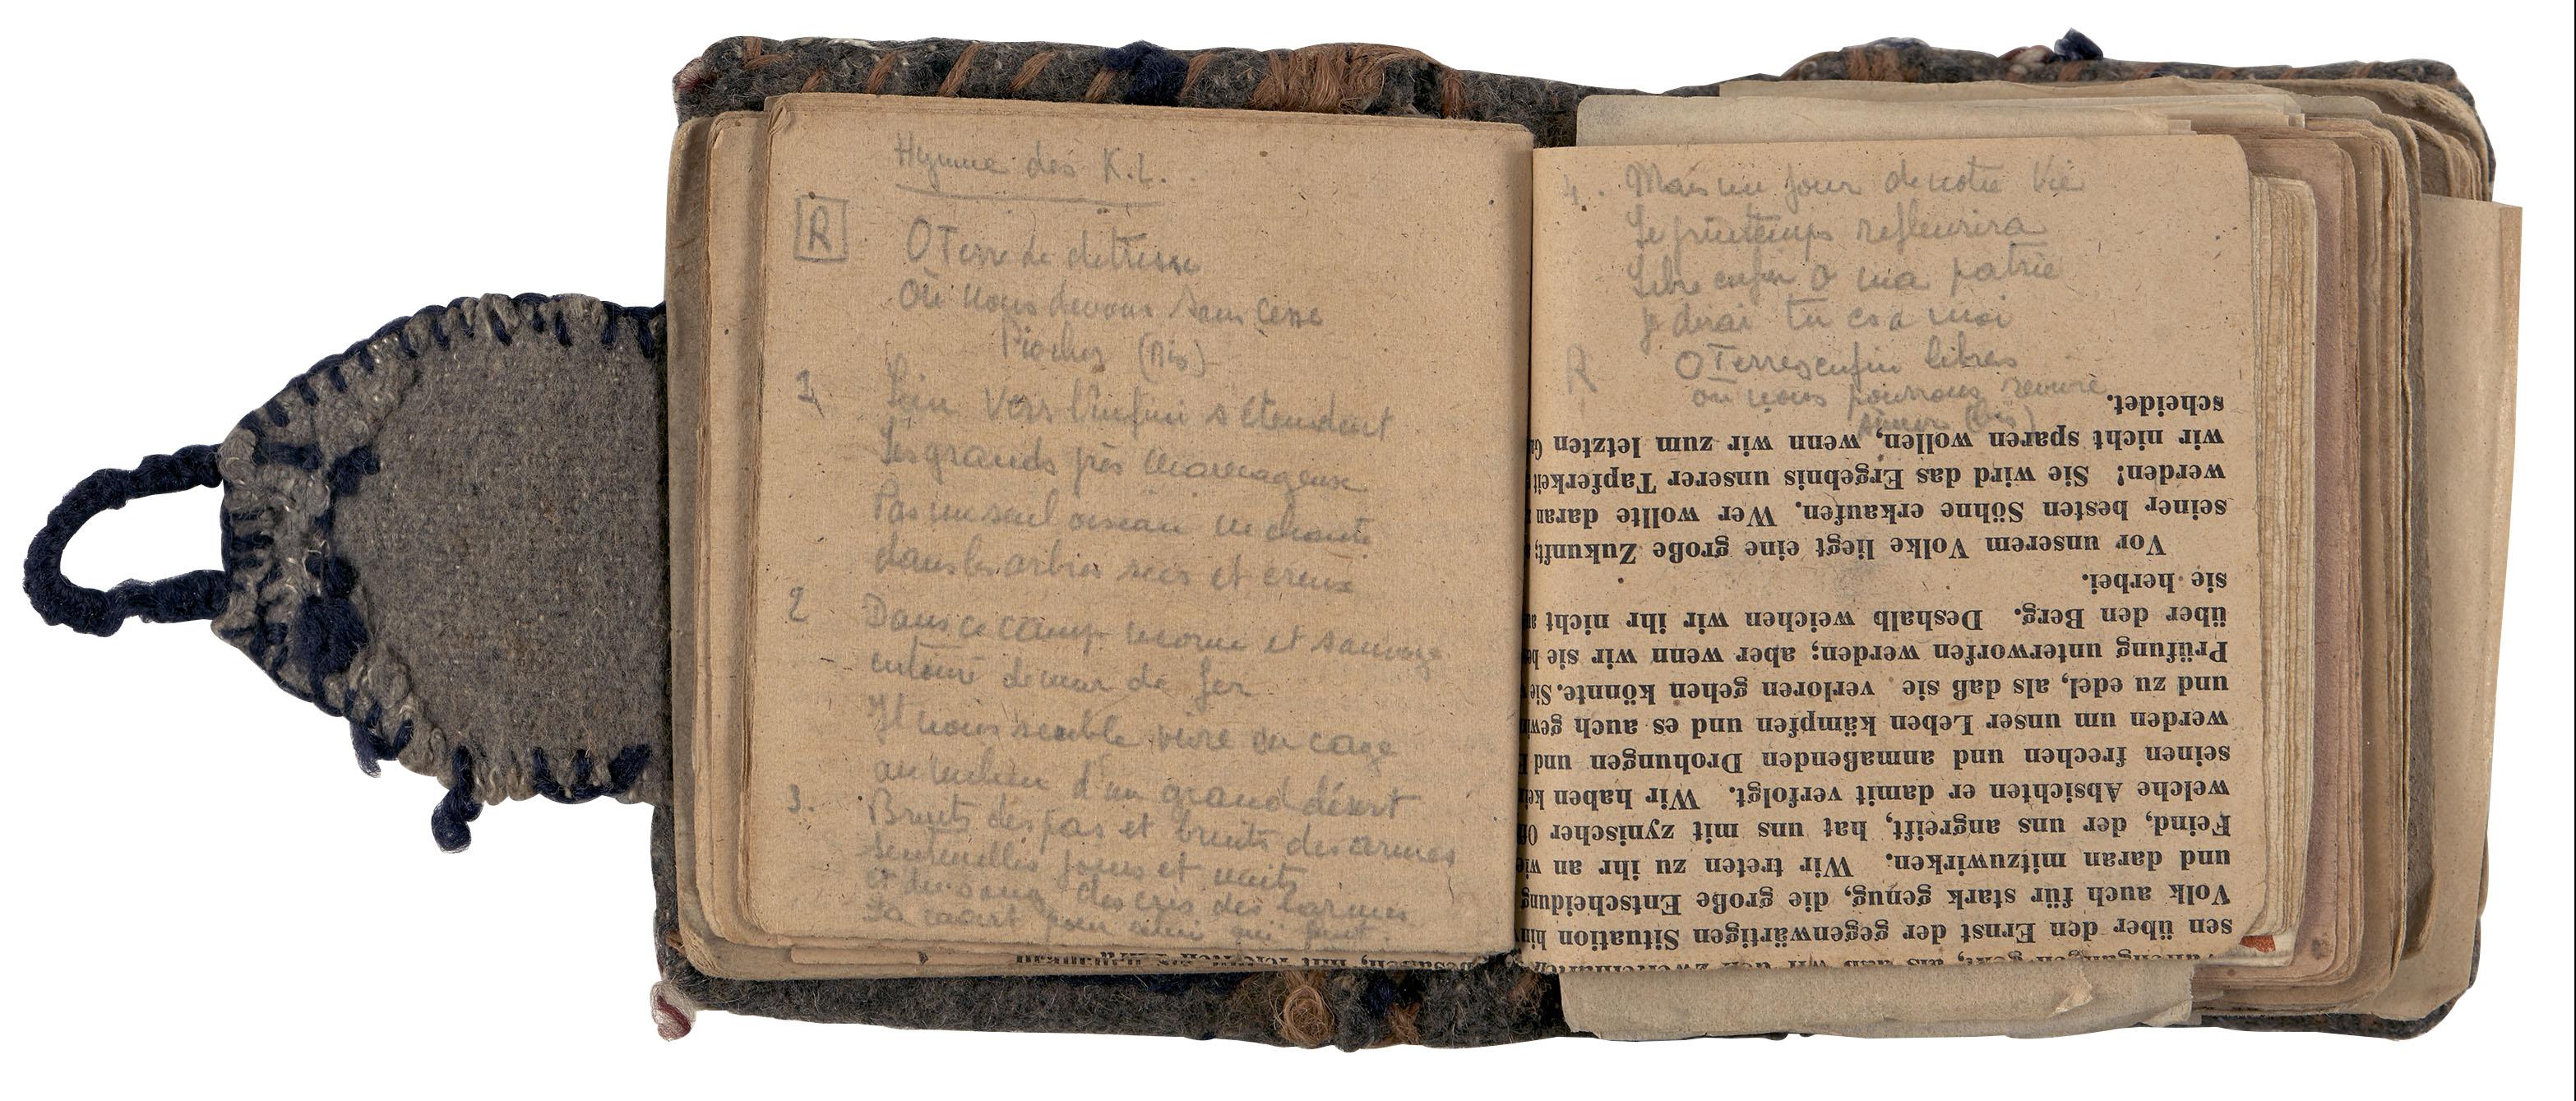 Hymne des K.L.
R
O Terre de detresse
Où nous devons sans cesse
Piocher (bis)
1 Loin vers l'infini s'étendent
Les grands prés marecageux
Pas un seul oiseau ne chante
dans les arbres secs et creux
2 Dans ce camp morne et sauvage
entouré de mur de fer
Il nous semble vivre en cage
au milieu d'un grand désert
3. Bruits des pas et bruits des armes
Sentinelles jours et nuits
et du sang des cris des larmes
La mort pour celui qui fuit.
4. Mais un jour de notre vie
Le printemps refleurira
Libre enfin O ma patrie
Je dirai tu es a moi
R O Terres enfin libres
où nous pourrons revivre
aimer (bis)
sen über den Ernst der gegenwärtigen Situation
Volk auch für stark genug, die große Entscheidung
und daran mitzuwirken. Wir treten zu ihr an
Feind, der uns angreift, hat uns mit zynischer
welche Absichten er damit verfolgt. Wir haben
seinen frechen und anmaßenden Drohungen und
werden um unser Leben kämpfen und es auch
und zu edel, als daß sie verloren gehen könnte. Sie
Prüfung unterworfen werden; aber wenn wir sie
über den Berg. Deshalb weichen wir ihr nicht
sie herbei.
Vor unserem Volke liegt eine große Zukunft,
seiner besten Söhne erkaufen. Wer wollte daran
werden! Sie wird das Ergebnis unserer Tapferkeit
wir nicht sparen wollen, wenn wir zum letzten
scheidet.